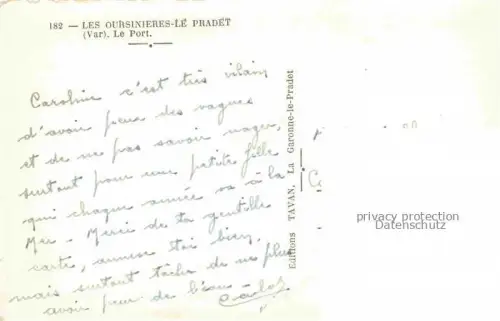 182 — LES OURSINIERES-LE PRADET
(Var). Le Port.
Caroline c'est très vilain
d'avoir peur des vagues
et de ne pas savoir nager,
surtout pour une petite fille
qui chaque année va à la
Mer. Merci de ta gentille
carte, amuse toi bien,
mais surtout tâche de ne plus
avoir peur de l'eau.
Editions TAVAN, La Garonne-le-Pradet
privacy protection
Datenschutz